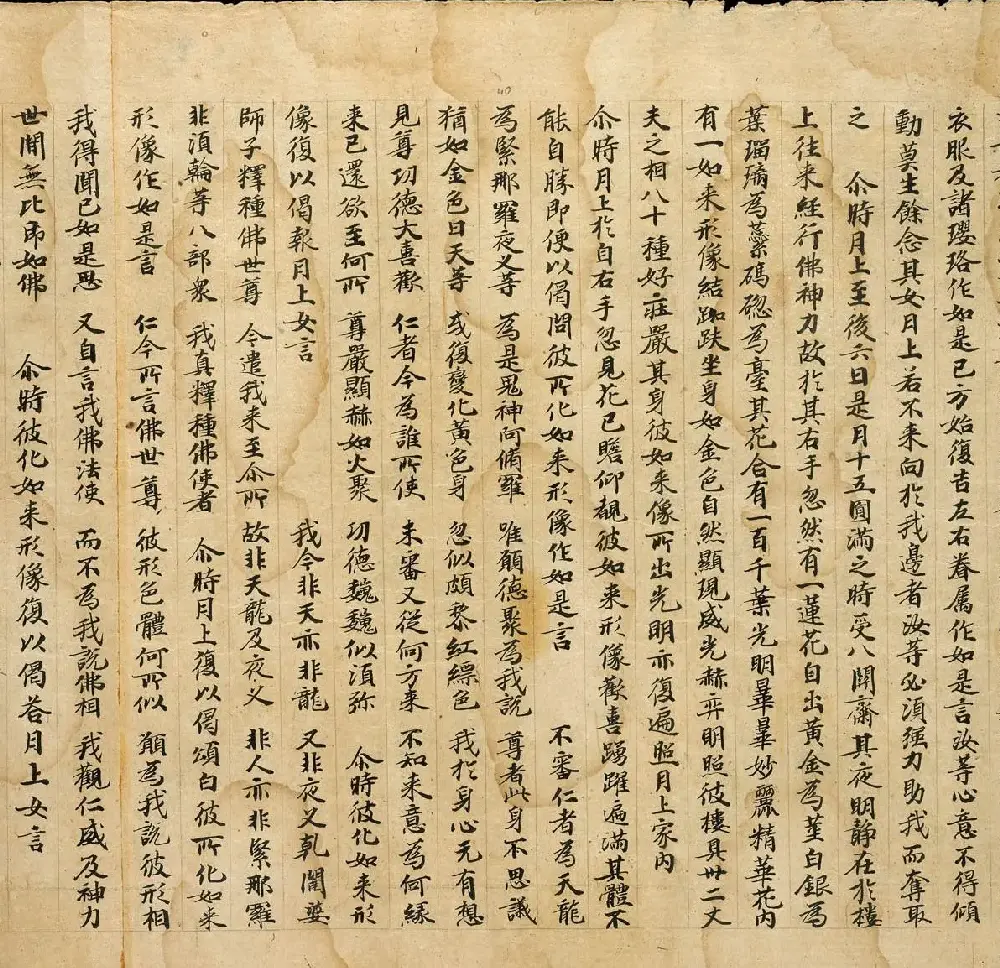 衣服及諸瓔珞作如是已方始復告左右眷属作如是言汝等心意不得傾
動莫生餘念其女月上若不来向於我邊者汝等必湏强力助我而奪取
之　尒時月上至後六日是月十五圓滿之時受八關齋其夜明静在於樓
上往来經行佛神力故於其右手忽然有一蓮花自出黄金為莖白銀為
葉瑠璃為蘂碼碯為臺其花合有一百千葉光明曅曅妙麗精華花内
有一如来形像結跏趺坐身如金色自然顯現威光赫弈明照彼樓具卅二丈
夫之相八十種好莊嚴其身彼如来像所出光明亦復遍照月上家内
尒時月上於自右手忽見花已瞻仰覩彼如来形像歡喜踴躍遍滿其體不
能自勝即便以偈問彼所化如来形像作如是言　不審仁者為天龍
為緊那羅夜叉等　為是鬼神阿脩羅　唯願德聚為我說　尊者此身不思議
猶如金色日天等　或復變化黄色身　忽似頗黎紅縹色　我於身心无有想
見尊功德大喜歡　仁者今為誰所使　未審又從何方来　不知来意為何緣
来已還欲至何所　尊嚴顯赫如火聚　功德巍巍似湏弥　尒時彼化如来形
像復以偈報月上女言　我今非天亦非龍　又非夜叉乹闥婆
師子釋種佛世尊　今遣我来至尒所　故非天龍及夜叉　非人亦非緊那羅
非湏輪等八部衆　我真釋種佛使者　尒時月上復以偈頌白彼所化如来
形像作如是言　仁今所言佛世尊　彼形色體何所似　願為我說彼形相
我得聞已如是思　又自言我佛法使　而不為我說佛相　我觀仁威及神力
世間無比即如佛　尒時彼化如来形像復以偈荅月上女言